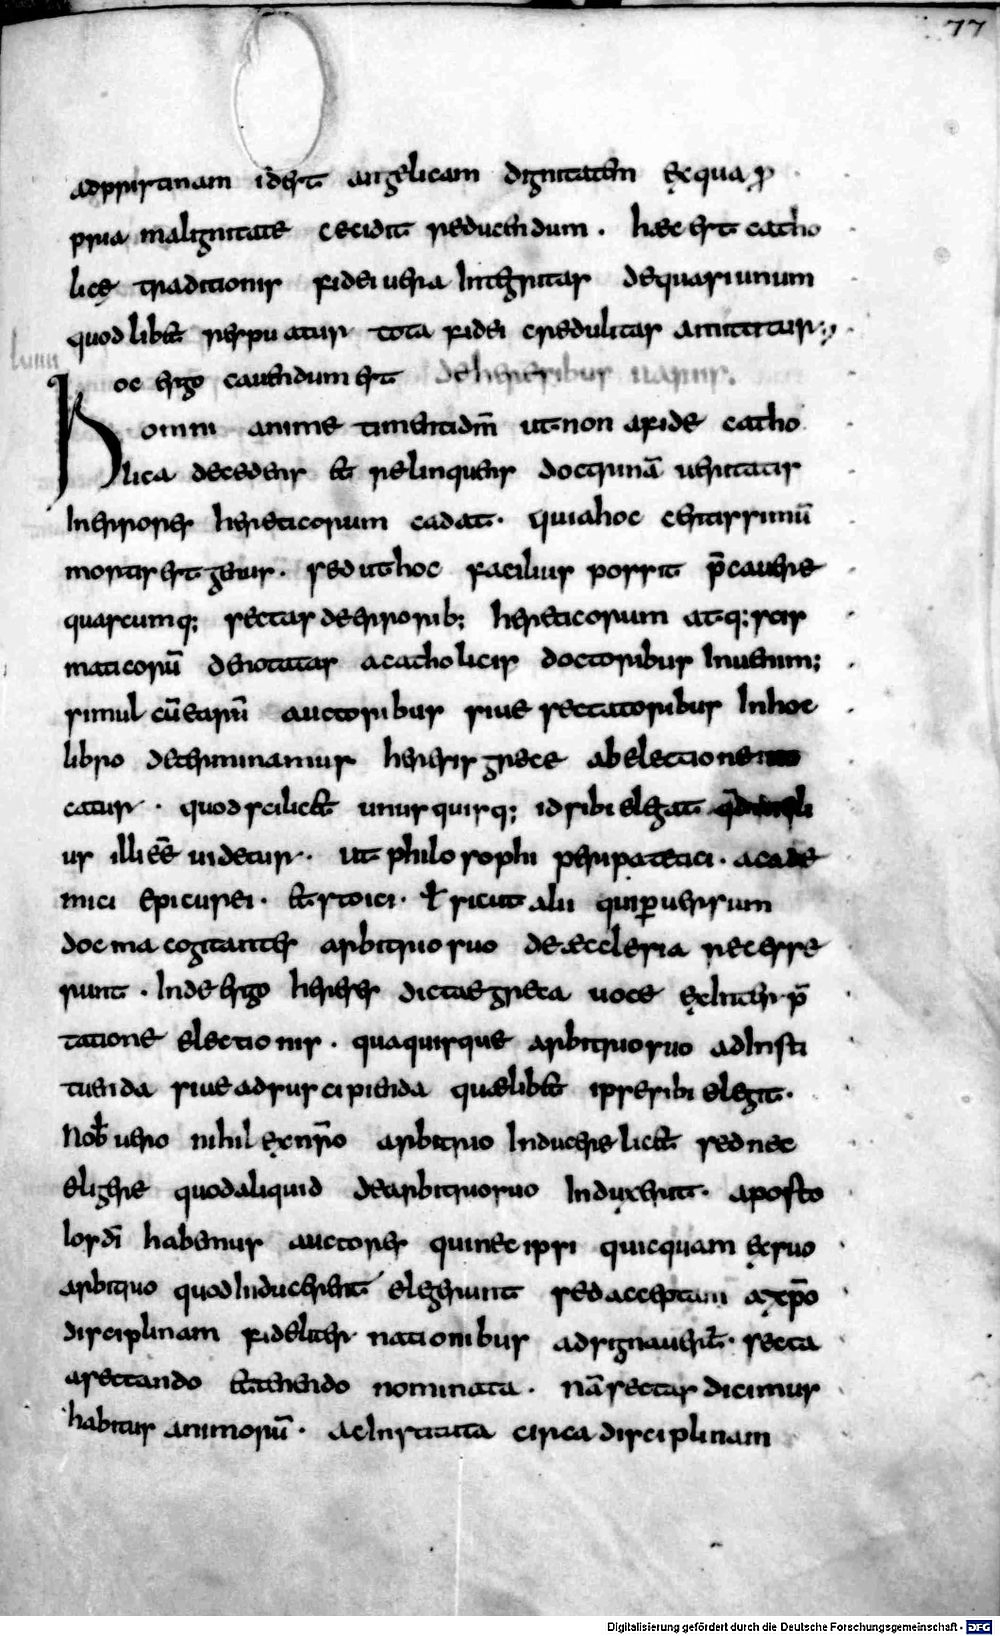 77
adppristinam idest angelicam dignitatem ęxqua ꝓ
pria malignitate cecidit reducendum . haec est catho
licę traditionis fidei uera Integritas dequasiunum
quodlibet respuatur tota fidei credulitas amittitur;
hoc ergo cauendum est de heresibus uariis.
homini anime timentidm̄ ut non afide catho
lica decedens et relinquens doctrinā ueritatis
Inerrores hereticorum cadat · quiahoc certissimū
mortis est genus . sed uthoc facilius possit p̄cauere
quascumq; sectas deerrorib; hereticorum atq; scis
maticorū denotatas acatholicis doctoribus Inuenim;
simul cū earū auctoribus siue sectatoribus Inhoc
libro determinamus heresis grece abelectione
catur · quod scilicet unus quisq; idsibi elegat
us illi eē uidetur · ut philosophi peripatetici · acade
mici epicurei · et stoici · ł sicut alii quiꝑuersum
docma cogitantes arbitrio suo deaecclesia recesse
runt · Inde ergo hereses dictae greca uoce ęxInterp̄
tatione electionis · qua quisque arbitrio suo adInsti
tuenda siue adsuscipienda quaelibet ipse sibi elegit ·
Nob̄ uero nihil ęxnr̄o arbitrio Inducere licet sed nec
eligere quod aliquid dearbitrio suo Induxerit · aposto
los dī habemus auctores quinec ipsi quicquam ęx suo
arbitrio quod Inducerent elegerunt sed acceptam axp̄o
disciplinam fideliter nationibus adsignauer̄t · secta
asectando et tenendo nominata · nā sectas dicimus
habitus animorū · ac Instituta circa disciplinam
Digitalisierung gefördert durch die Deutsche Forschungsgemeinschaft - DFG